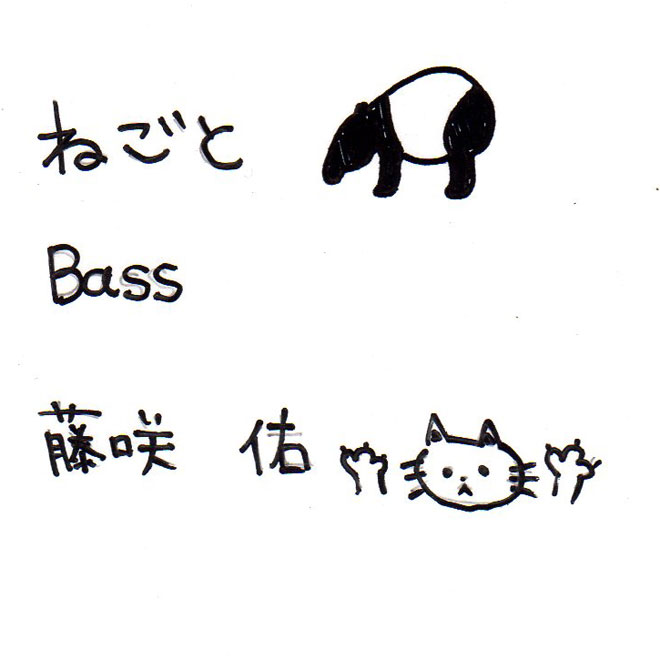 ねごと
Bass
藤咲 佑